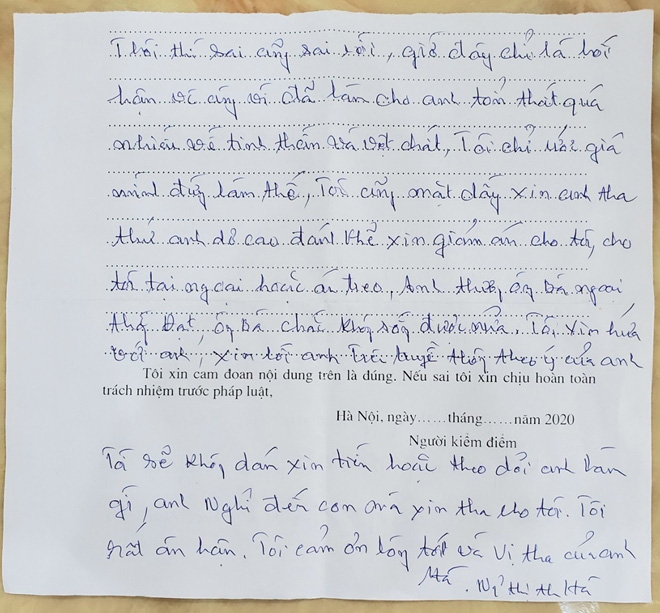 Thôi thì sai cũng sai rồi, giờ đây chỉ là hối
hận vì cũng vì đã làm cho anh tổn thất quá
nhiều về tinh thần và vật chất, Tôi chỉ ước giá
mình đừng làm thế, Tôi cũng mặt dầy xin anh tha
thứ anh dơ cao đánh khẽ xin giảm án cho tôi, cho
tôi tại ngoại hoặc án treo, Anh thương ông bà ngoại
thằng Đạt, ông Bà chắc không sống được nữa, Tôi xin hứa
với anh, xin lỗi anh Trên truyền thông theo ý của anh
Tôi xin cam đoan nội dung trên là đúng. Nếu sai tôi xin chịu hoàn toàn
trách nhiệm trước pháp luật,
Hà Nội, ngày......tháng......năm 2020
Người kiểm điểm
Tôi sẽ không dám xin tiền hoặc theo dõi anh làm
gì, anh Nghĩ đến con mà xin tha cho tôi. Tôi
rất ân hận. Tôi cảm ơn lòng tốt và Vị tha của anh
Hà